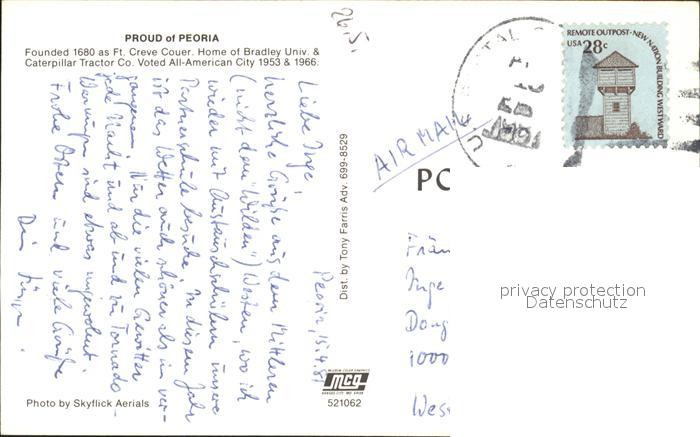 PROUD of PEORIA
Founded 1680 as Ft. Creve Couer. Home of Bradley Univ. &
Caterpillar Tractor Co. Voted All-American City 1953 & 1966.
Peoria, 15.4.81
Liebe Inge,
herzliche Grüße aus dem Mittleren
(nicht dem "Wilden") Westen, wo ich
wieder mit Austauschschülern unsere
Partnerschule besuche. In diesem Jahr
ist das Wetter auch schöner als im ver-
gangenen. Nur die vielen Gewitter
jede Nacht und ab und zu Tornado-
Warnungen sind etwas ungewohnt.
Frohe Ostern und viele Grüße
Dein Jürgen.
Photo by Skyflick Aerials
Dist. by Tony Farris Adv. 699-8529
mcg
KANSAS CITY, MO.
521062
26.5.
AIR MAIL
REMOTE OUTPOST·NEW NATION BUILDING WESTWARD
USA 28c
PO
Inge
1000
privacy protection
Datenschutz